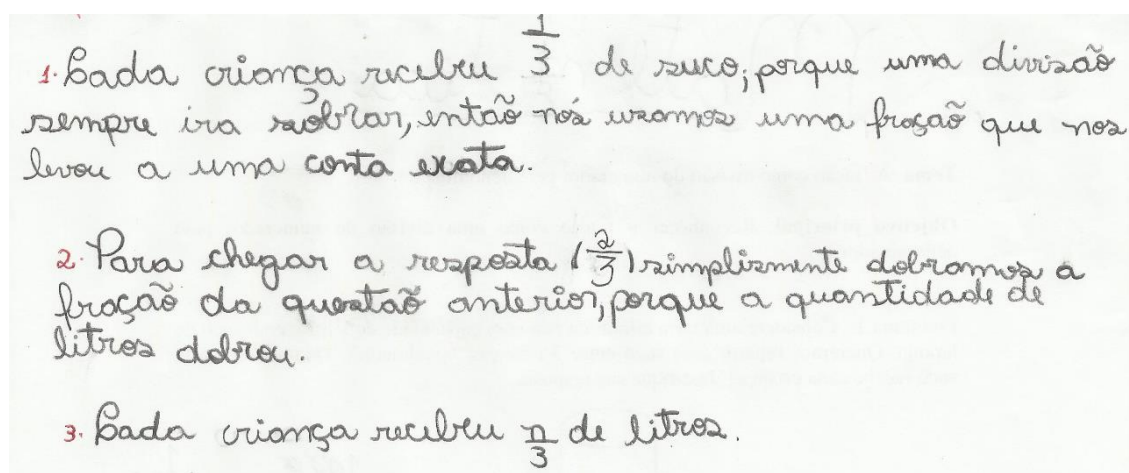 1. Cada criança recebeu 1/3 de suco, porque uma divisão
sempre ira sobrar, então nós usamos uma fração que nos
levou a uma conta exata.
2. Para chegar a resposta (2/3) simplismente dobramos a
fração da questão anterior, porque a quantidade de
litros dobrou.
3. Cada criança recebeu n/3 de litros.